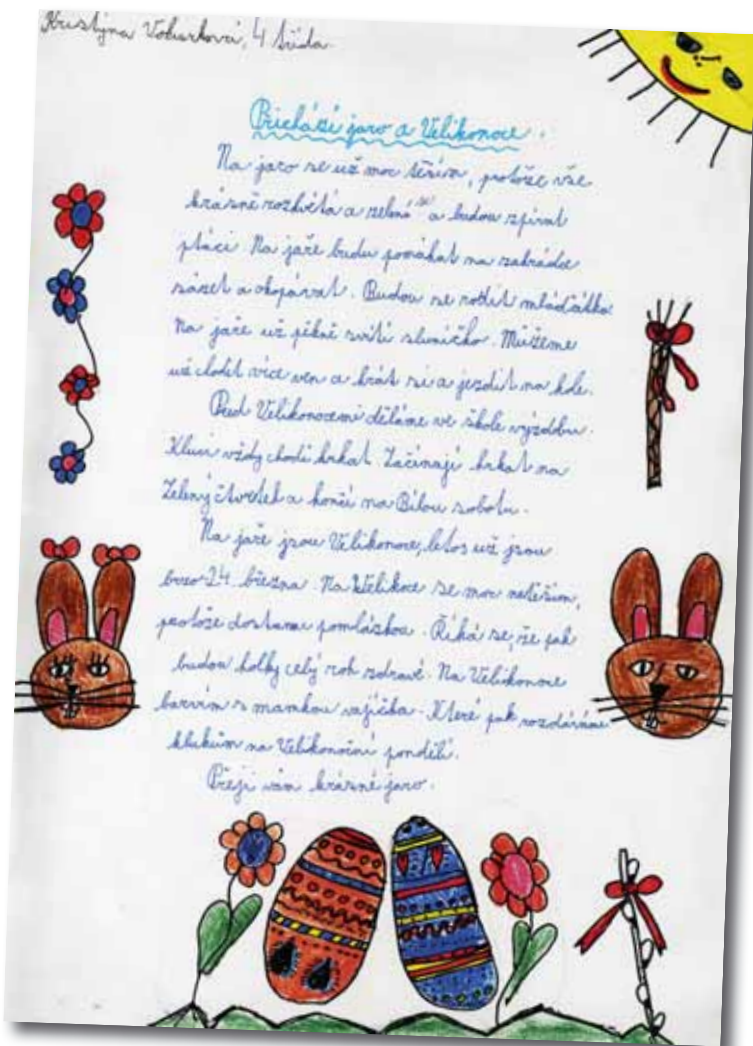 Kristýna Vokurková, 4 třída.
Přichází jaro a Velikonoce.
Na jaro se už moc těším, protože vše
krásně rozkvétá a zelená se a budou zpívat
ptáci. Na jaře budu pomáhat na zahrádce
sázet a okopávat. Budou se rodit mláďátka.
Na jaře už pěkně svítí sluníčko. Můžeme
už chodit více ven a hrát si a jezdit na kole.
Před Velikonocemi děláme ve škole výzdobu.
Kluci vždy chodí hrkat. Začínají hrkat na
Zelený čtvrtek a končí na Bílou sobotu.
Na jaře jsou Velikonoce, letos už jsou
24. března. Na se moc netěším,
protože dostanu pomlázkou. Říká se, že pak
budou holky celý rok zdravé. Na Velikonoce
barvím s mamkou vajíčka. Které pak rozdáváme
klukům na Velikonoční pondělí.
Přeji vám krásné jaro.